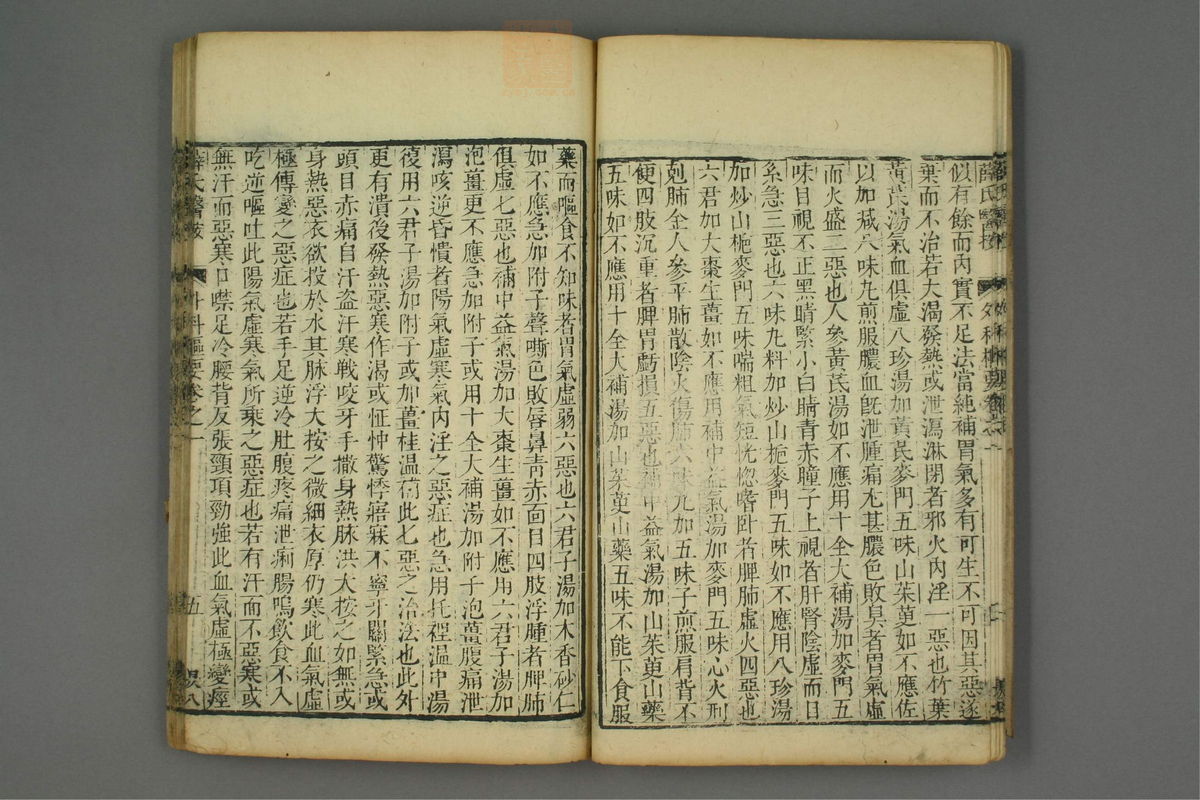 薛氏醫按 外科樞要卷之一
似有餘而內實不足法當純補胃氣多有可生不可因其惡遂
棄而不治若大渴發熱或泄瀉淋閉者邪火內淫一惡也竹葉
黃芪湯氣血俱虛八珍湯加黃芪麥門五味山茱萸如不應佐
以加減六味丸煎服膿血既泄腫痛尤甚膿色敗臭者胃氣虛
而火盛二惡也人參黃芪湯如不應用十全大補湯加麥門五
味目視不正黑睛緊小白睛青赤瞳子上視者肝腎陰虛而目
系急三惡也六味丸料加炒山梔麥門五味如不應用八珍湯
加炒山梔麥門五味喘粗氣短恍惚嗜卧者脾肺虛火四惡也
六君加大棗生薑如不應用補中益氣湯加麥門五味心火刑
剋肺金人參平肺散陰火傷肺六味丸加五味子煎服肩背不
便四肢沉重者脾胃虧損五惡也補中益氣湯加山茱萸山藥
五味如不應用十全大補湯加山茱萸山藥五味不能下食服
藥而嘔食不知味者胃氣虛弱六惡也六君子湯加木香砂仁
如不應急加附子聲嘶色敗唇鼻青赤面目四肢浮腫者脾肺
俱虛七惡也補中益氣湯加大棗生薑如不應用六君子湯加
泡薑更不應急加附子或用十全大補湯加附子泡薑腹痛泄
瀉咳逆昏憒者陽氣虛寒氣內淫之惡症也急用托裡溫中湯
復用六君子湯加附子或加薑桂温葡此七惡之治法也此外
更有潰後發熱惡寒作渴或怔忡驚悸寤寐不寧牙關緊急或
頭目赤痛自汗盗汗寒戰咬牙手撒身熱脉洪大按之如無或
身熱惡衣欲投於水其脉浮大按之微細衣厚仍寒此血氣虛
極傳變之惡症也若手足逆冷肚腹疼痛泄痢腸鳴飲食不入
吃逆嘔吐此陽氣虛寒氣所乘之惡症也若有汗而不惡寒或
無汗而惡寒口噤足冷腰背反張頸項勁強此血氣虛極變痙
薛氏醫按 外科樞要卷之一 五